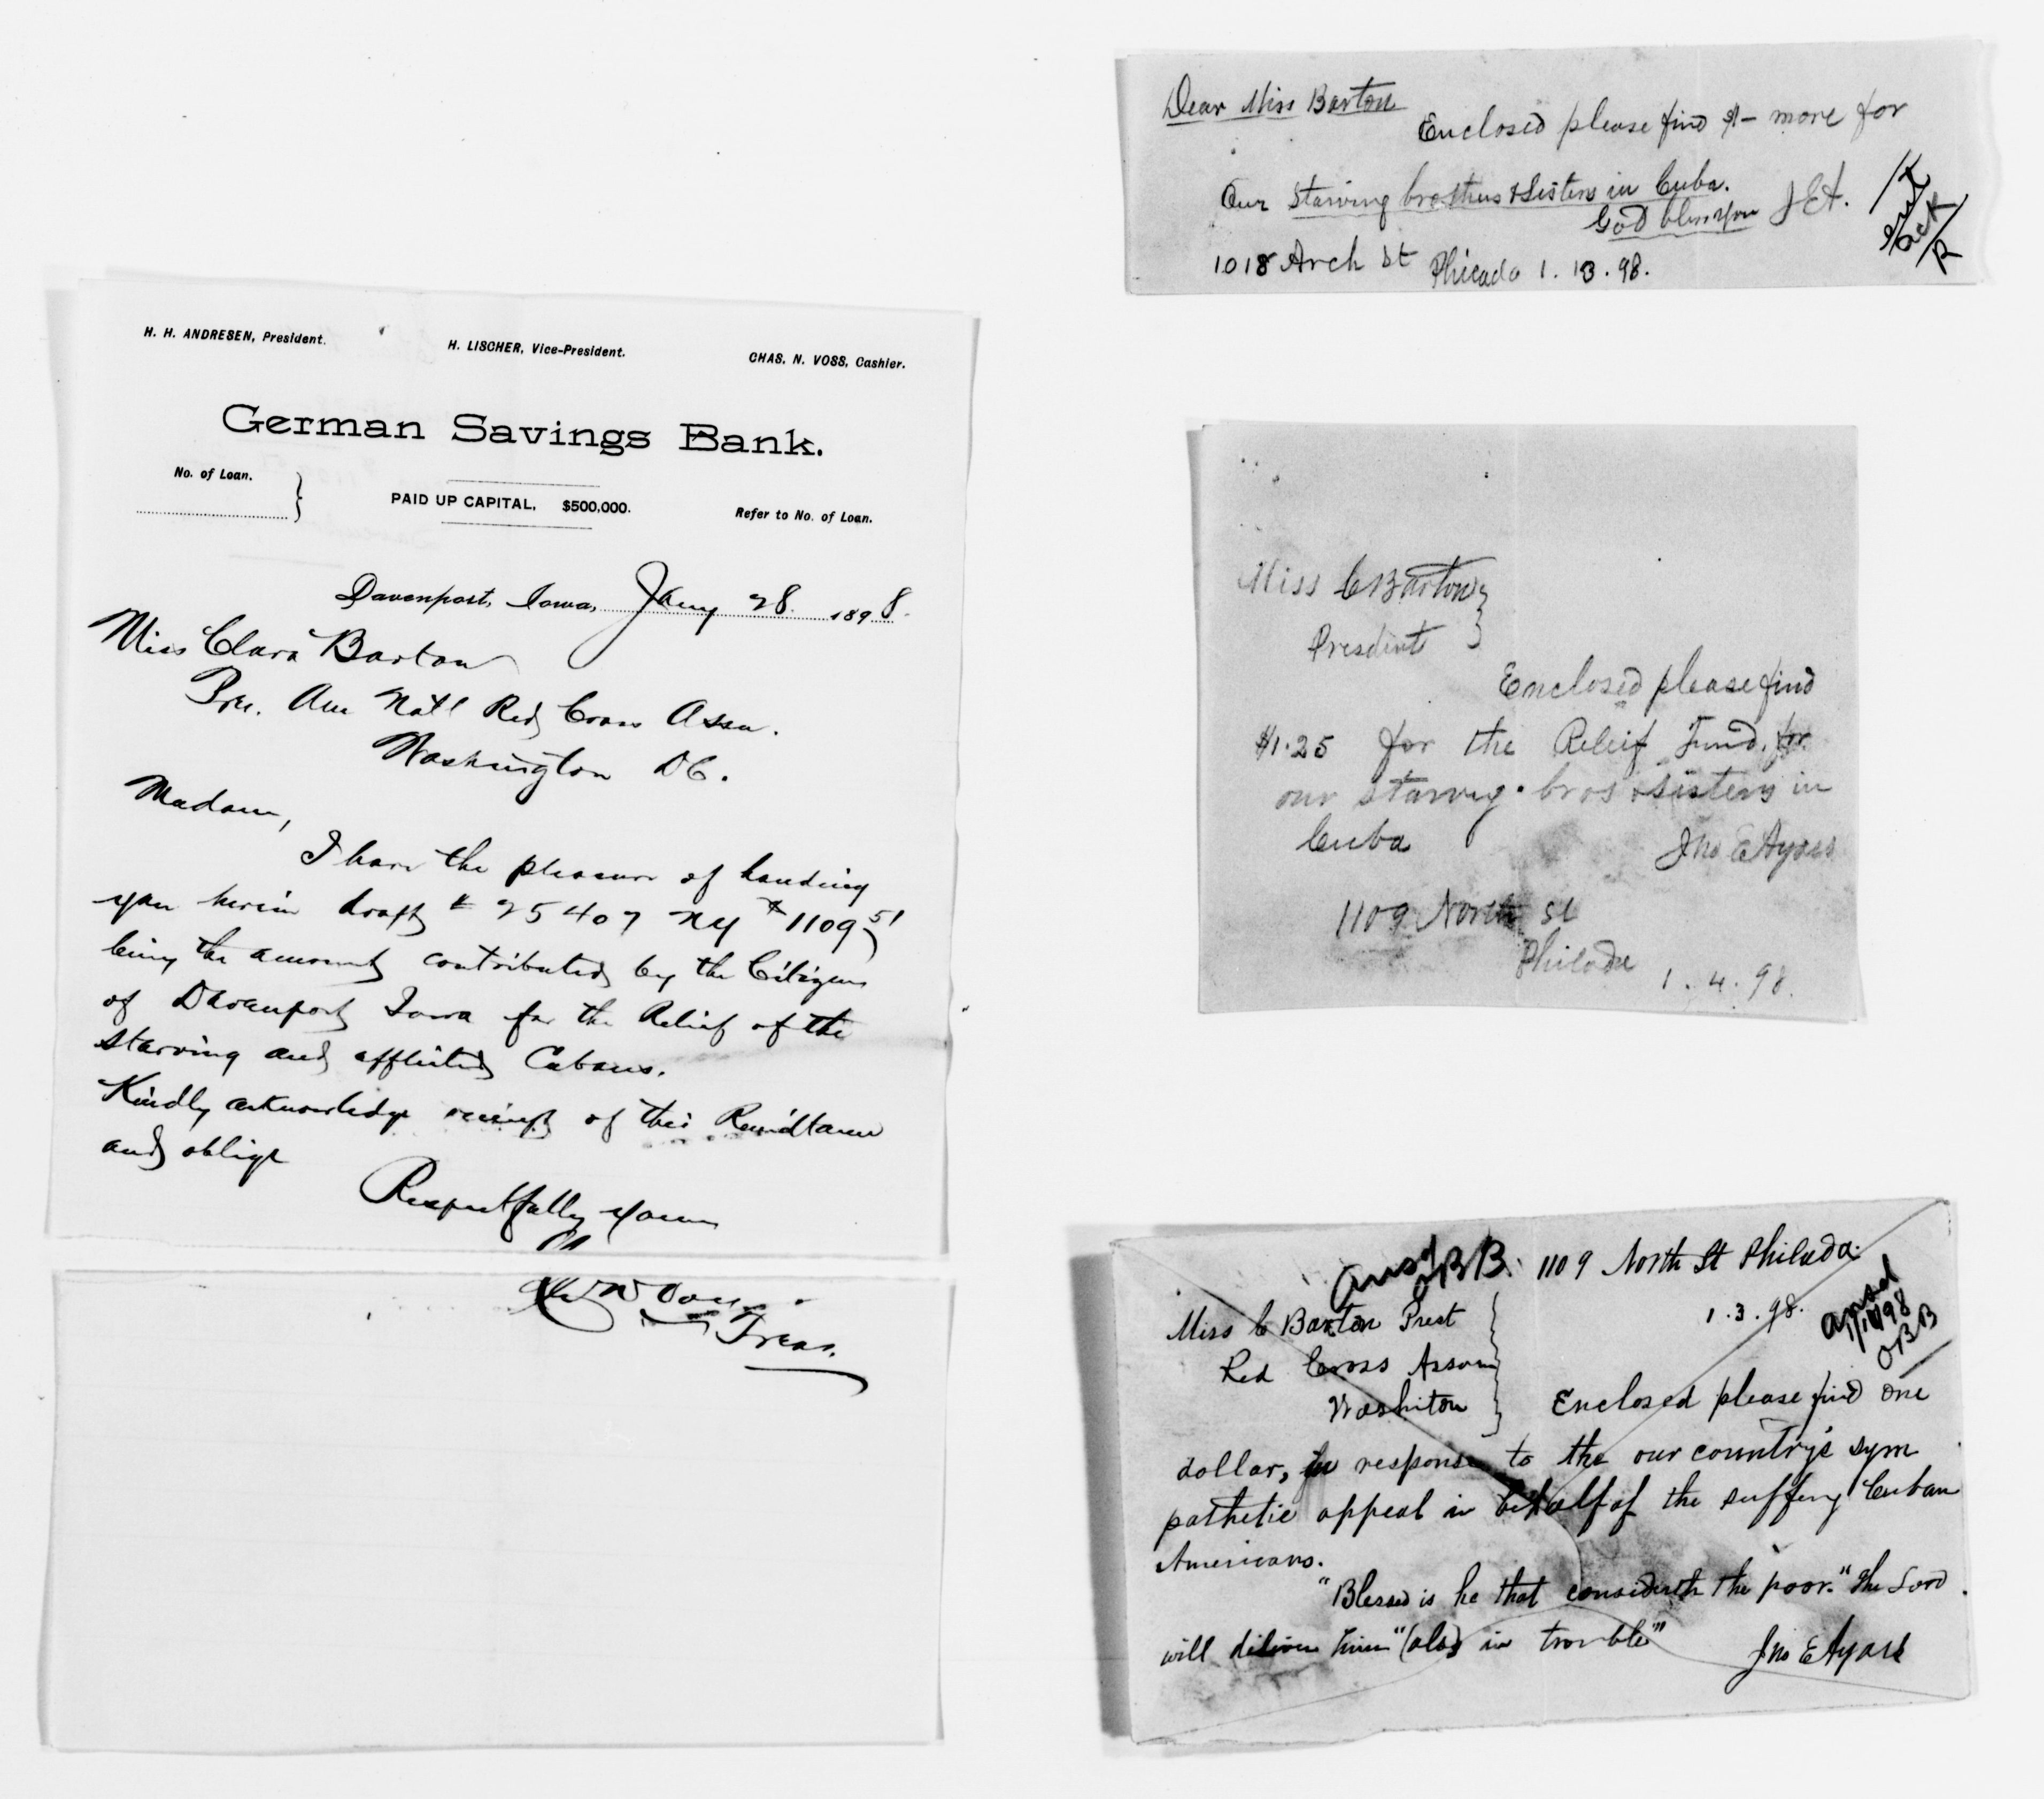 H. H. ANDRESEN, President.
H. LISCHER, Vice-President.
CHAS. N. VOSS, Cashier.
German Savings Bank.
No. of Loan.
PAID UP CAPITAL, $500,000.
Refer to No. of Loan.
Davenport, Iowa, Jany 28 1898.
Miss Clara Barton
Pres. Am Natl Red Cross Assn.
Washington DC.
Madam,
I have the pleasure of handing
you herein draft # 25407 NY $1109 51
being the amount contributed by the Citizens
of Davenport Iowa for the Relief of the
starving and afflicted Cubans.
Kindly acknowledge receipt of this Remittance
and oblige
Respectfully yours
Treas.
Dear Miss Barton
Enclosed please find $1- more for
Our starving brothers & Sisters in Cuba.
God bless you J E A.
1018 Arch St Philada 1. 13. 98.
ack
Miss C Barton
Presdent
Enclosed please find
$1.25 for the Releif Fund, for
our starvng bros & sisters in
Cuba
Jno E Ayars
1109 North St
Philade
1. 4. 98.
ansd
OBB. 1109 North St Philada.
1. 3. 98.
ansd
98
OBB
Miss C Barton Prest
Red Cross Assom
Washiton
Enclosed please find one
dollar, in response to the our country's sym
pathetic appeal in behalf of the suffering Cuban
Americans.
"Blessed is he that considereth the poor." The Lord
will deliver him "(also) in trouble"
Jno E Ayars